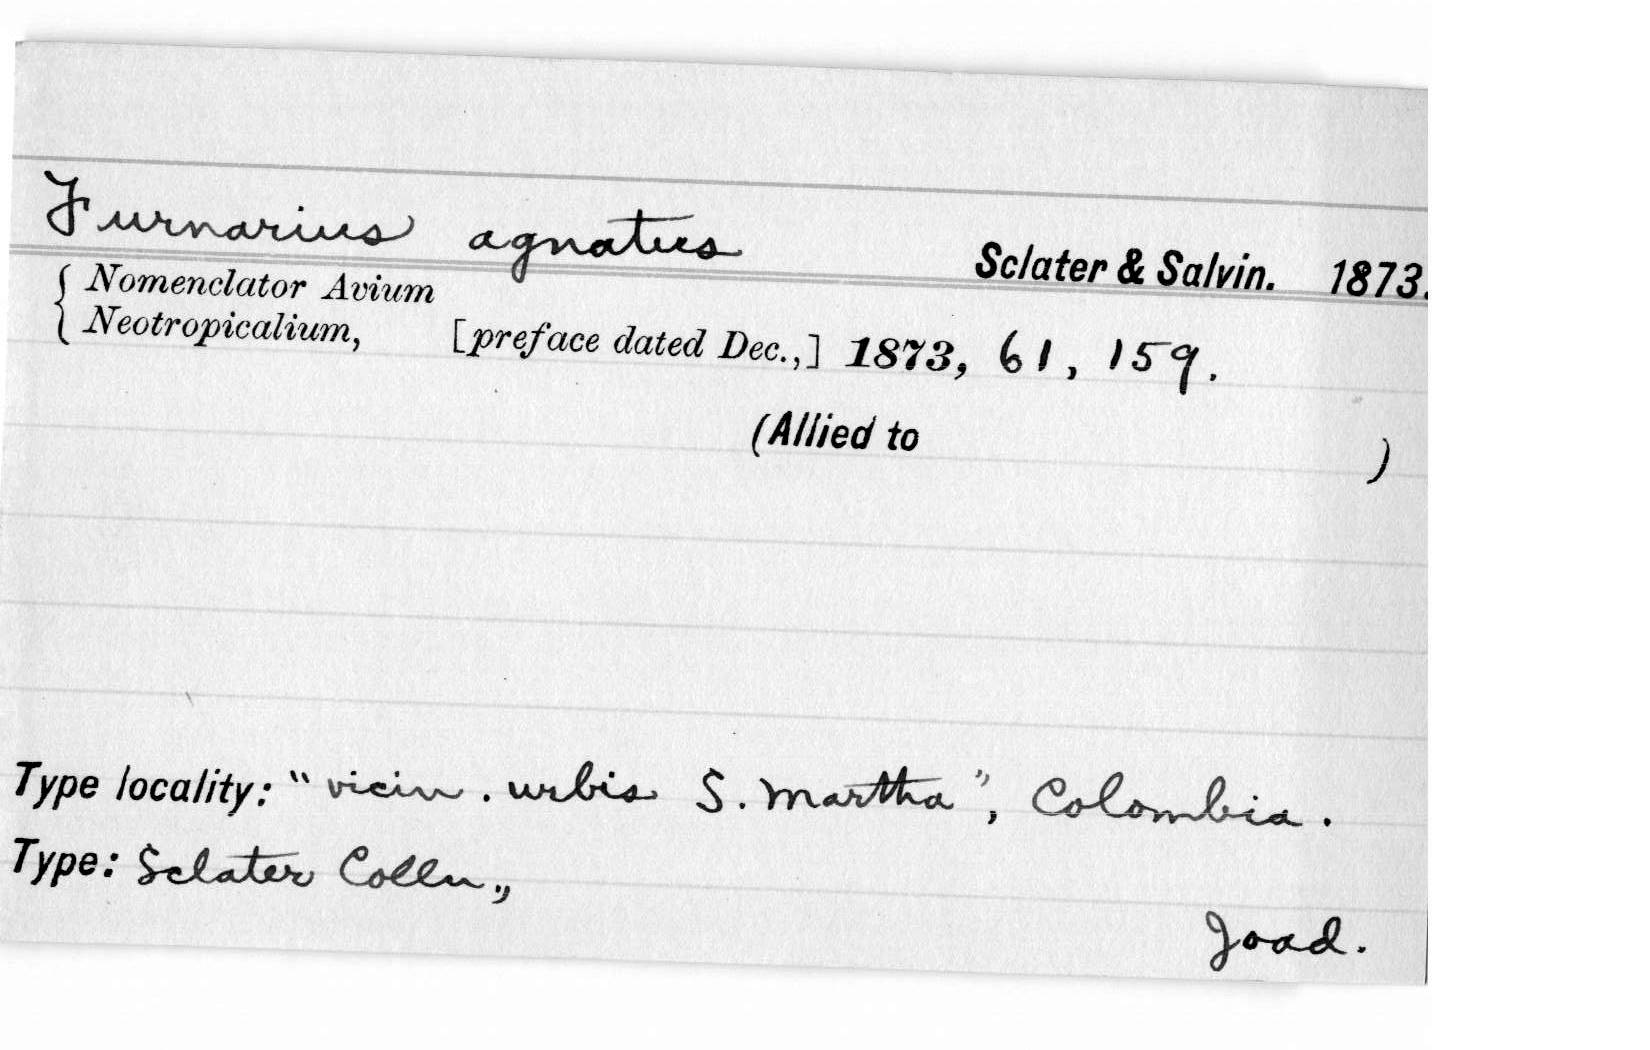 Furnarius agnatus Sclater & Salvin. 1873.
{ Nomenclator Avium
{ Neotropicalium, [preface dated Dec.,] 1873, 61, 159.
(Allied to )
Type locality: "vicin. urbis S. Martha", Colombia.
Type: Sclater Colln.,
Joad.